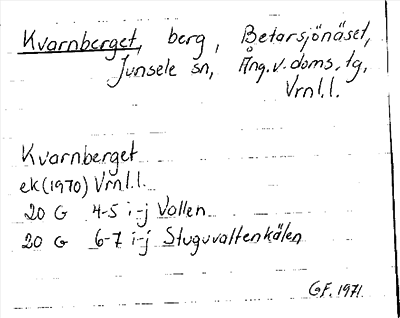 Kvarnberget, berg, Betarsjönäset,
Junsele sn, Ång.v.doms.tg,
Vrnl.l.
Kvarnberget
ek(1970) Vrnl.l.
20 G 4-5 i-j Vallen
20 G 6-7 i-j Stuguvattenkälen
G.F. 1971